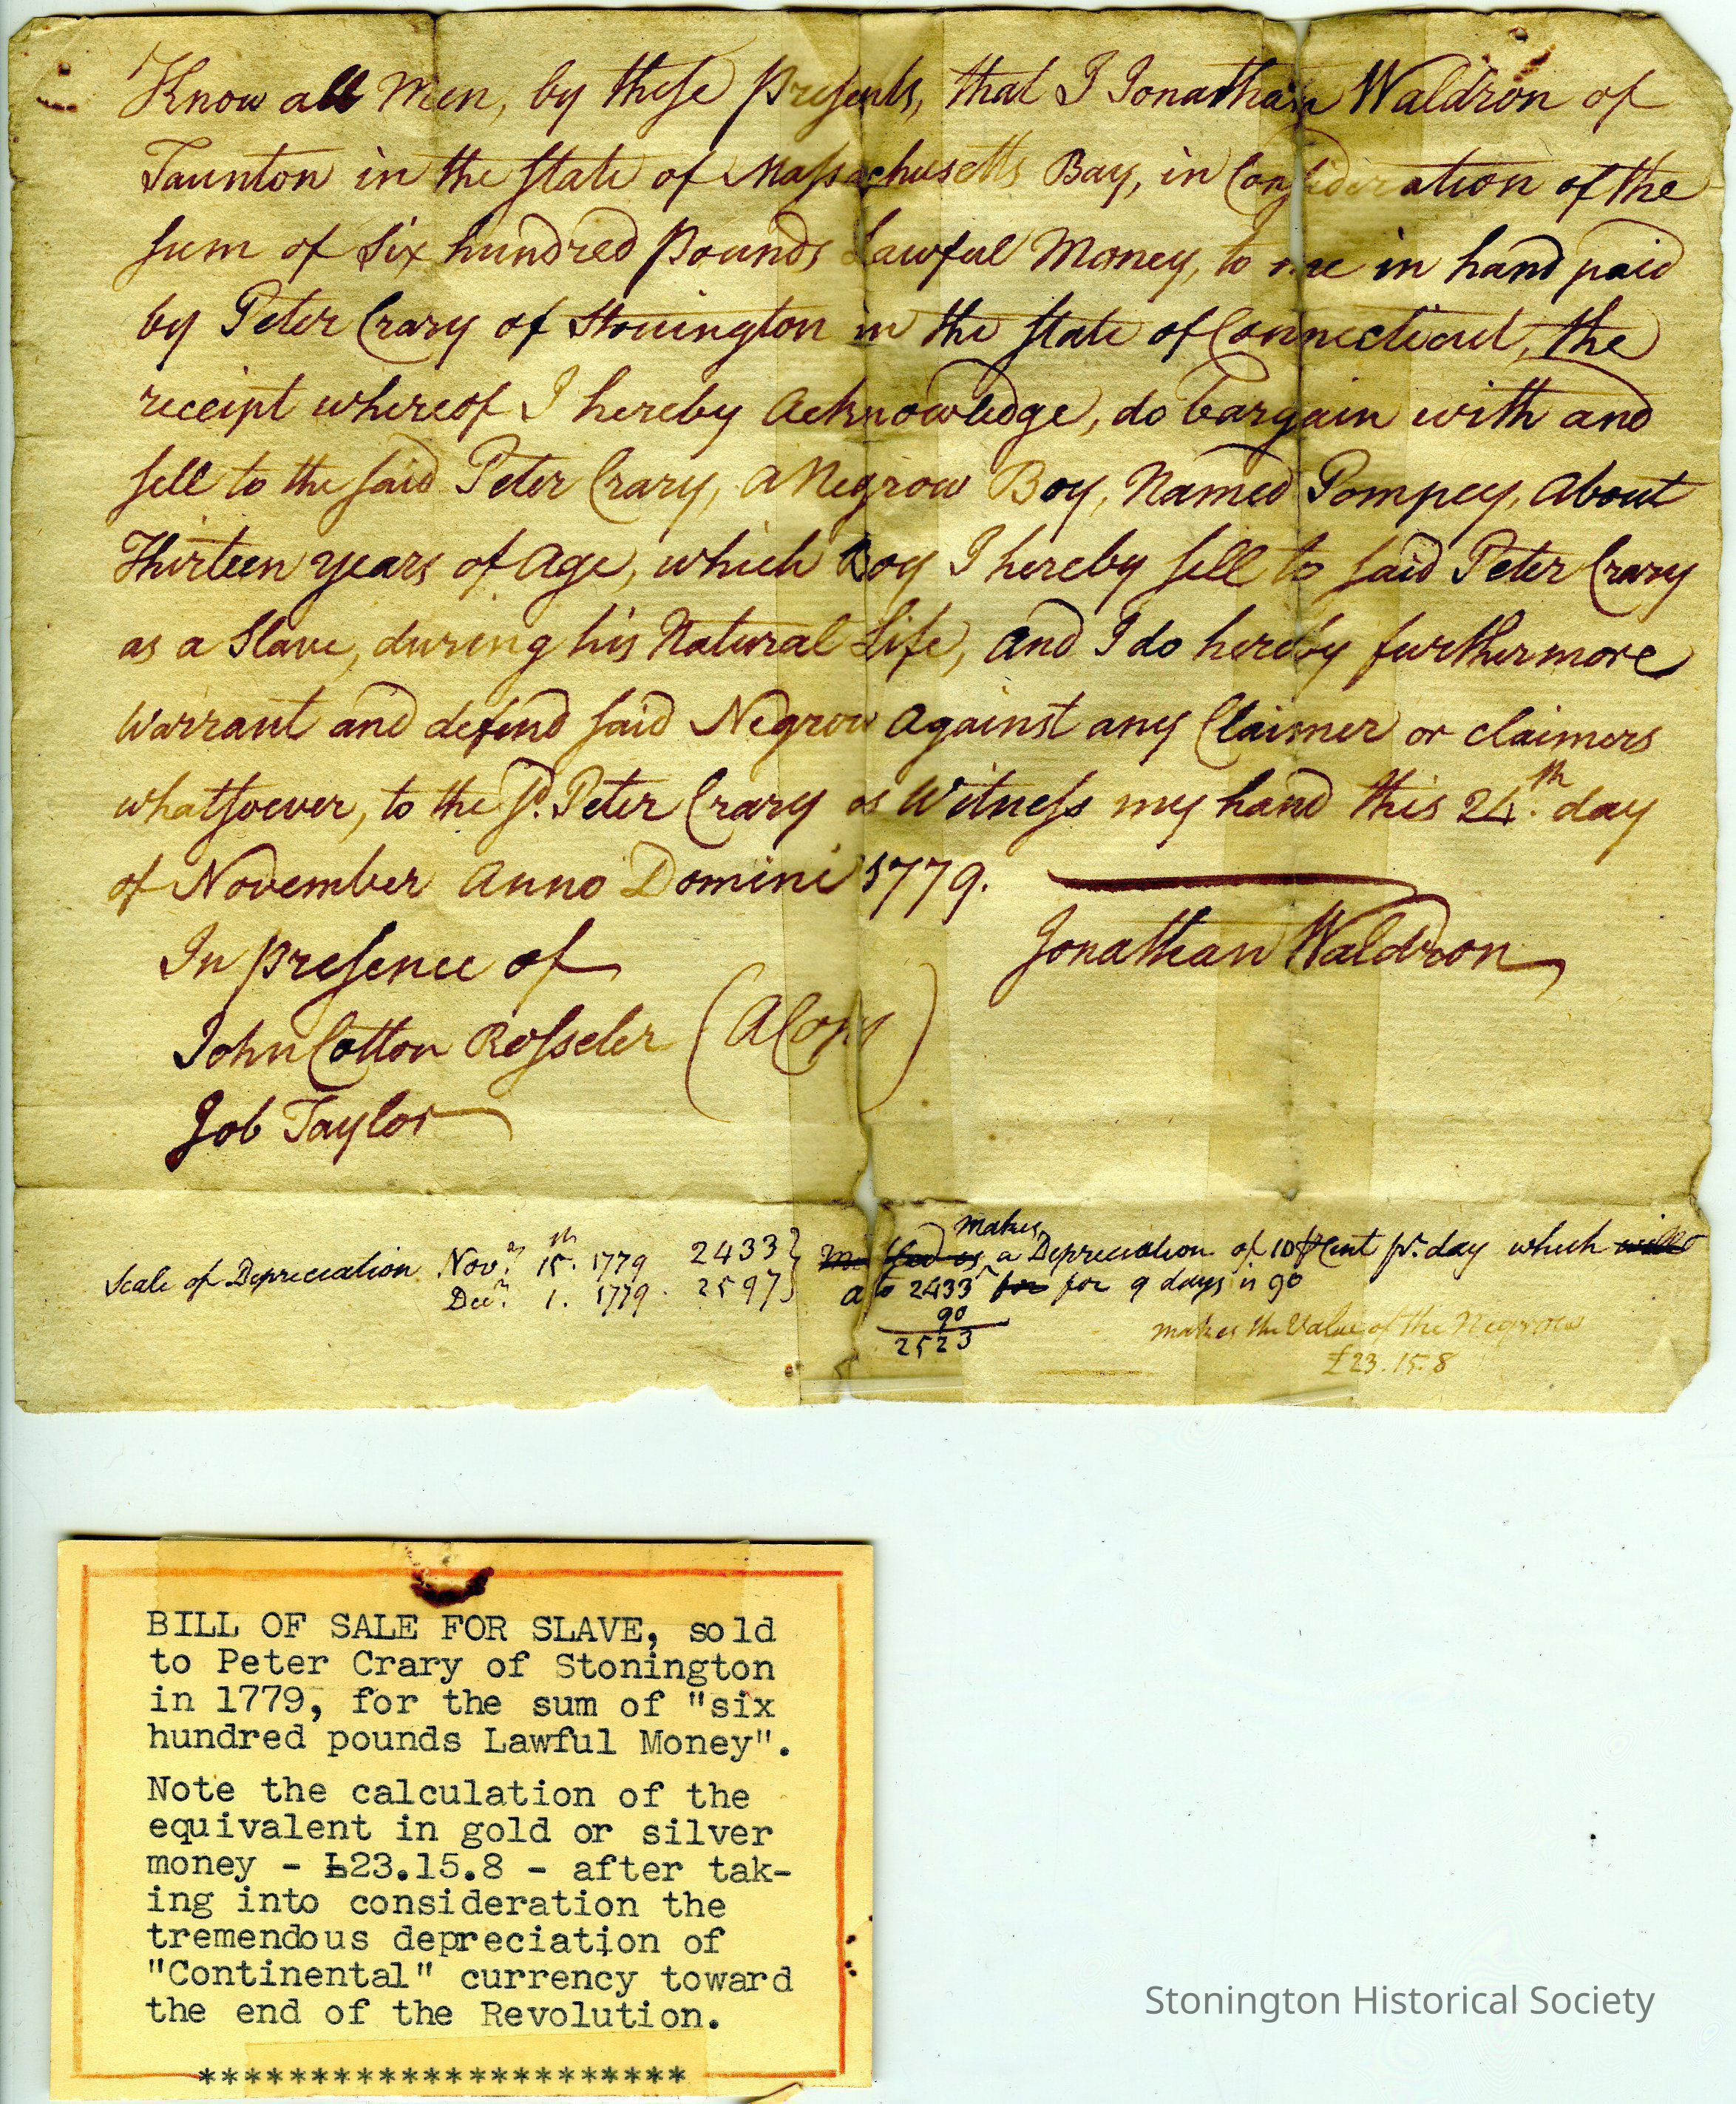 Know all Men, by these Presents, that I Jonathan Waldron of
Taunton in the State of Massachusetts Bay, in Consideration of the
sum of Six hundred Pounds Lawful Money, to me in hand paid
by Peter Crary of Stonington in the State of Connecticut, the
receipt whereof I hereby Acknowledge, do bargain with and
sell to the said Peter Crary, a Negrow Boy, Named Pompey, About
Thirteen years of Age, which Boy I hereby sell to said Peter Crary
as a Slave, during his Natural Life, and I do hereby furthermore
Warrant and defend said Negrow Against any Claimer or claimers
whatsoever, to the sd. Peter Crary as Witness my hand this 24.th day
of November Anno Domini 1779.
In presence of
Jonathan Waldron
John Cotton Rosseler (A Copy)
Job Taylor
Scale of Depreciation Novr. 15.th 1779 2433 } makes a Depreciation of 10 Cent pr. day which
Decr. 1. 1779. 2597 } a to 2433 for 9 days is 90
90
2523
makes the Value of the Negrow
£23.15.8
BILL OF SALE FOR SLAVE, sold
to Peter Crary of Stonington
in 1779, for the sum of "six
hundred pounds Lawful Money".
Note the calculation of the
equivalent in gold or silver
money - £23.15.8 - after tak-
ing into consideration the
tremendous depreciation of
"Continental" currency toward
the end of the Revolution.
**********************
Stonington Historical Society